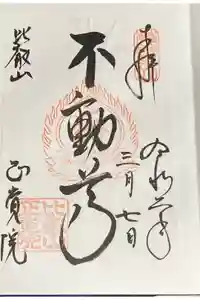 奉拝
令和六年
三月七日
不動尊
比叡山
正覚院